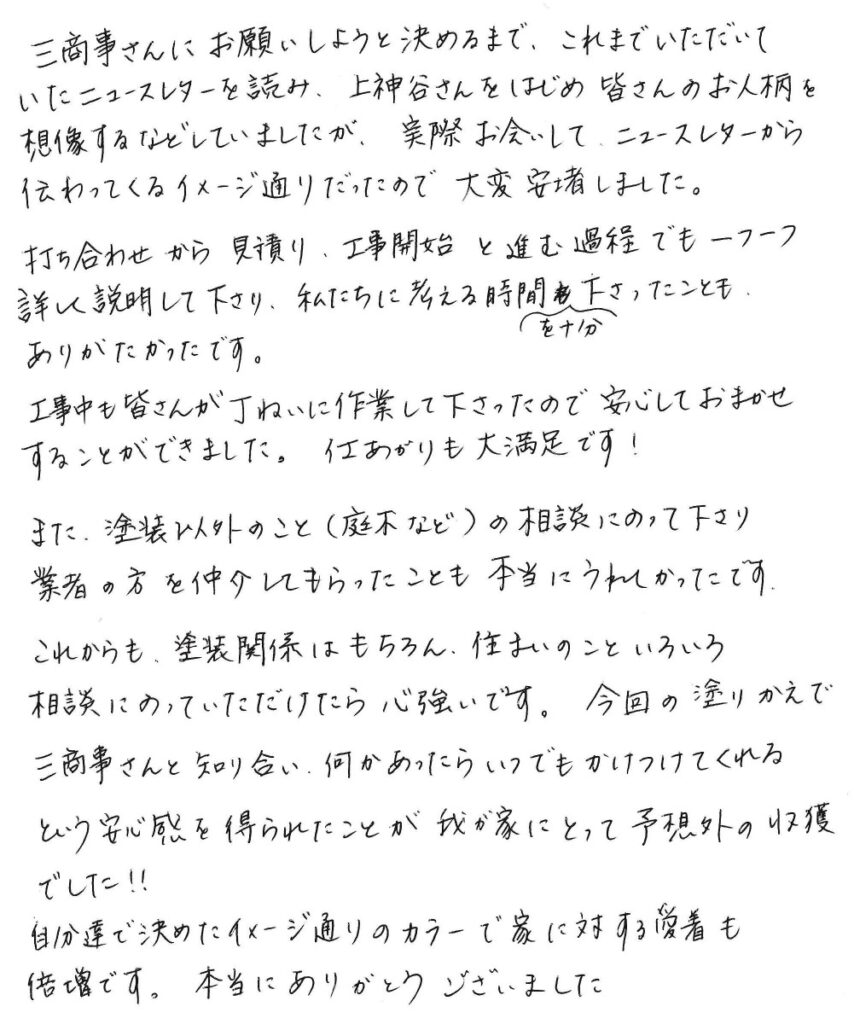 三商事さんにお願いしようと決めるまで、これまでいただいて
いたニュースレターを読み、上神谷さんをはじめ皆さんのお人柄を
想像するなどしていましたが、実際お会いして、ニュースレターから
伝わってくるイメージ通りだったので大変安堵しました。
打ち合わせから見積り、工事開始と進む過程でも一つ一つ
詳しく説明して下さり、私たちに考える時間を十分下さったことも、
ありがたかったです。
工事中も皆さんが丁ねいに作業して下さったので安心しておまかせ
することができました。仕あがりも大満足です!
また、塗装以外のこと(庭木など)の相談にのって下さり
業者の方を仲介してもらったことも本当にうれしかったです.
これからも、塗装関係はもちろん、住まいのこといろいろ
相談にのっていただけたら心強いです。今回の塗りかえで
三商事さんと知り合い、何かあったらいつでもかけつけてくれる
という安心感を得られたことが我が家にとって予想外の収獲
でした!!
自分達で決めたイメージ通りのカラーで家に対する愛着も
倍増です。本当にありがとうございました